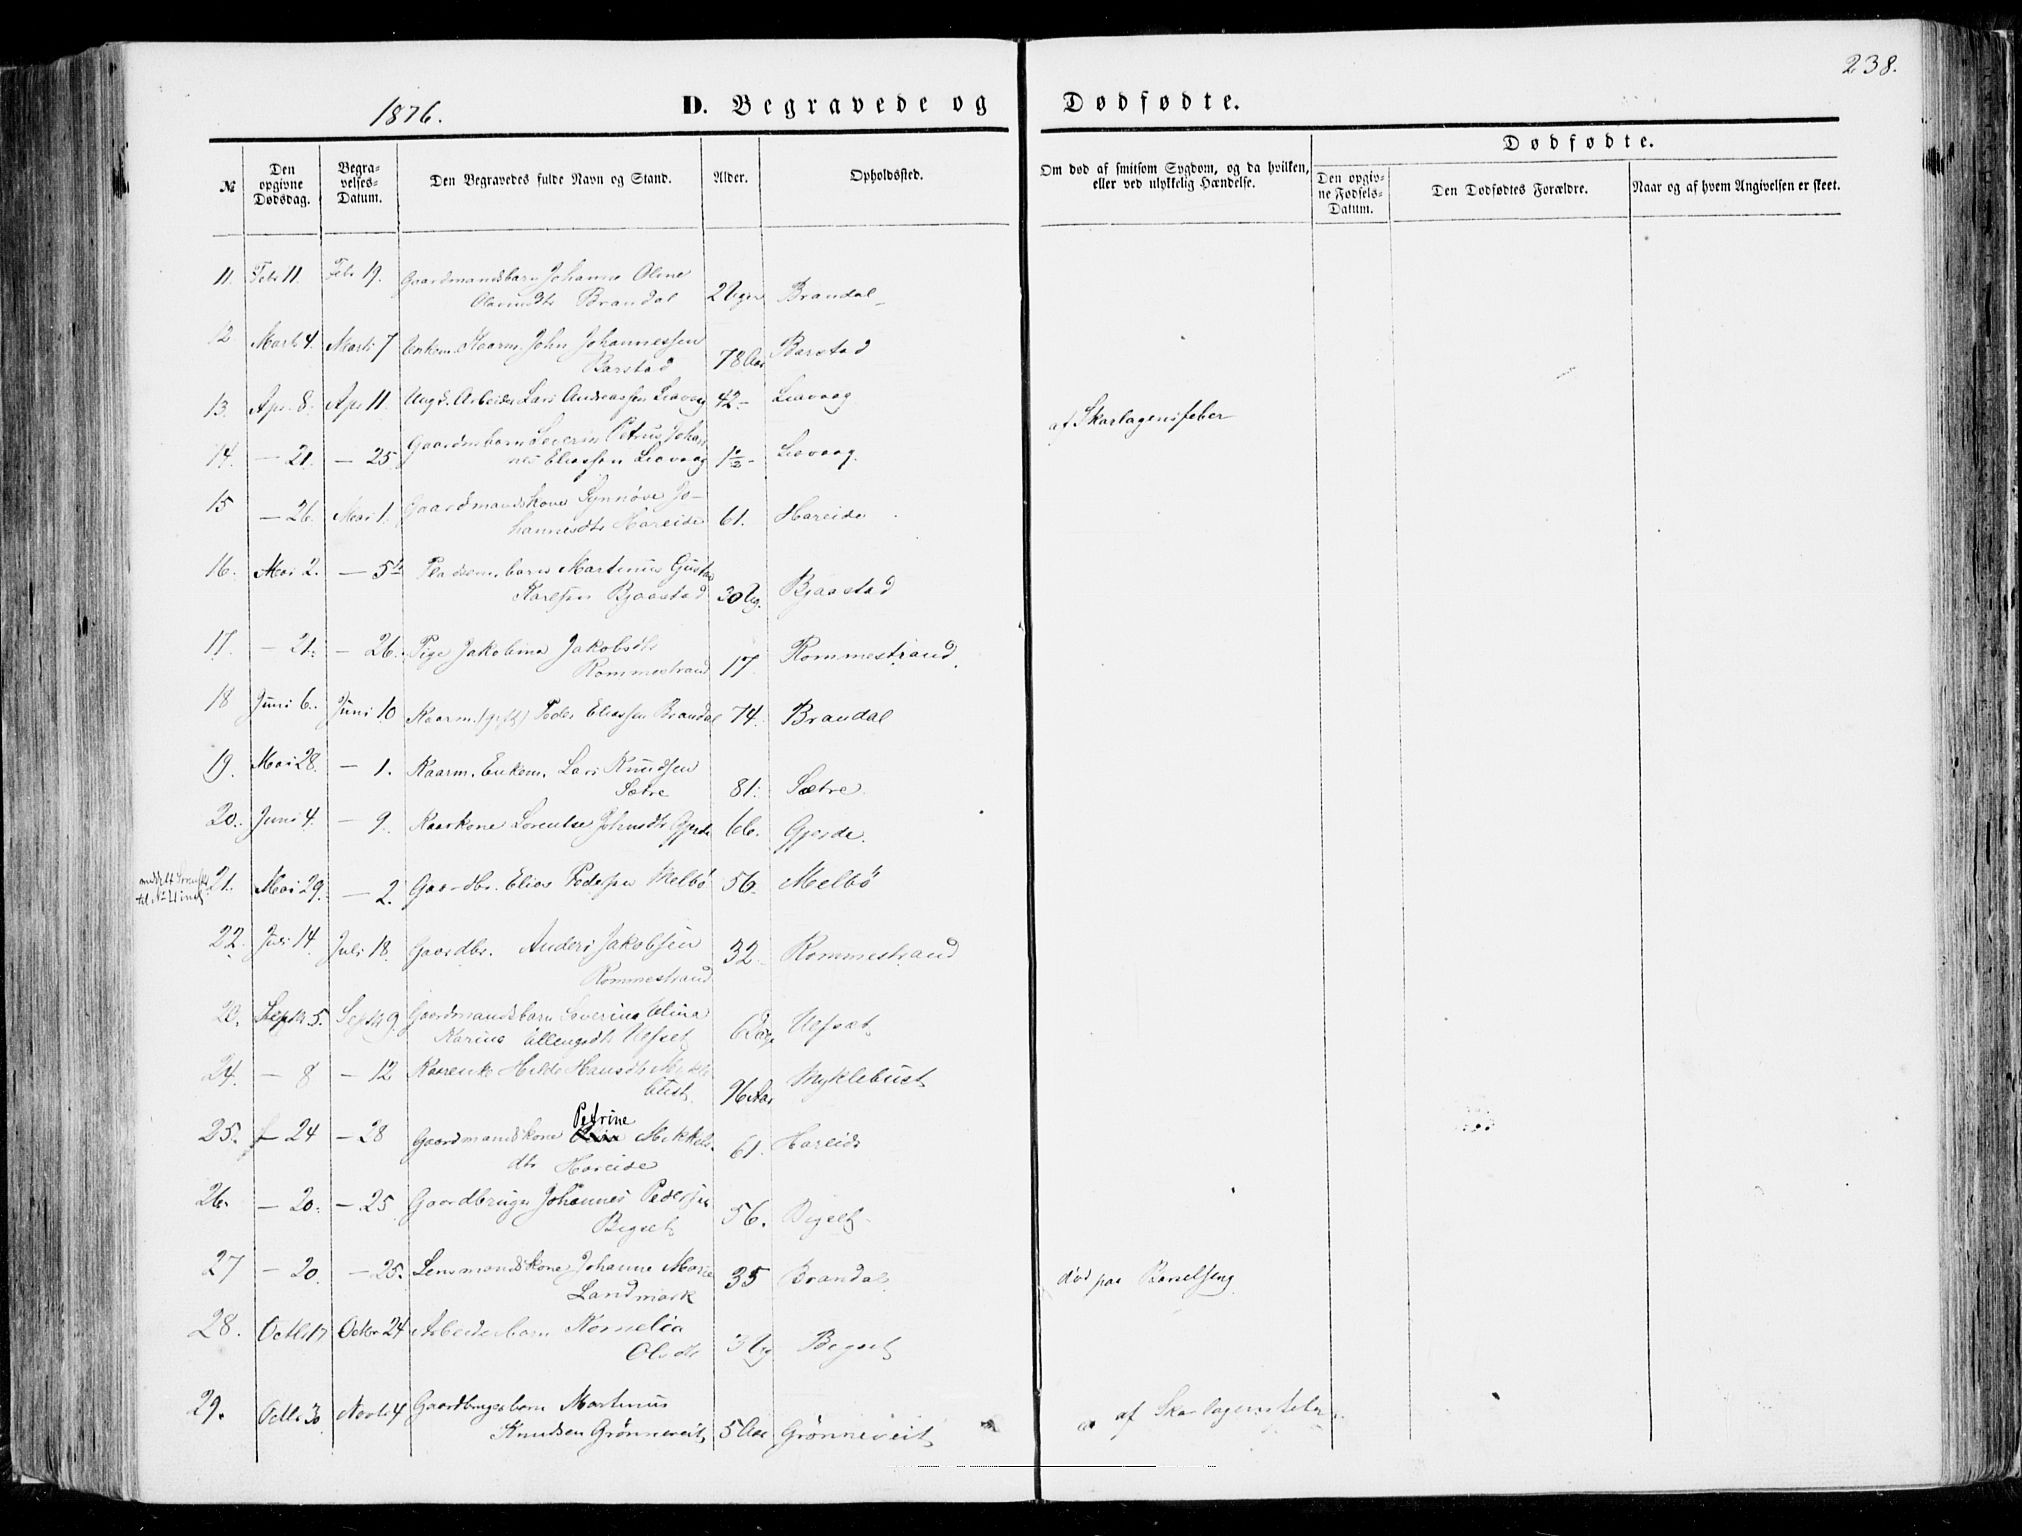 238.
1876.
D. Begravede og Dødfødte.
Dødfødte.
№
Den opgivne Dødsdag.
Begravelses-Datum.
Den Begravedes fulde Navn og Stand.
Alder.
Opholdssted.
Om død af smitsom Sygdom, og da hvilken, eller ved ulykkelig Hændelse.
Den opgivne Fødsels-Datum.
Den Dødfødtes Forældre.
Naar og af hvem Angivelsen er skeet.
11. Febr 11. Febr 19. Gaardmandsbarn Johanne Oline
Brandal 2 Uger Brandal
12 Marts 4. Marts 7 Enkem. Kaarm. John Johannessen
Barstad 78 Aar Barstad
13. Apr. 8. Apr 11. Ungk. Arbeider Lars Andreassen Liavaag 42 - Liavaag
af Skarlagensfeber
14. - 21. - 25 Gaardmbarn Severin Petrus Johan
nes Eliassen Liavaag 1½ - Liavaag.
15 - 26. Mai 1. Gaardmandskone Synnøve Jo-
hannesdtr Hareide 61. Hareide
16. Mai 2. - 5te Pladsem. barn Martinus Gustav
Karlsen Bjaastad 30 Ug. Bjaastad
17. - 21. - 26. Pige Jakobina Jakobsdtr
Rommestrand 17 Rommestrand.
18 Juni 6. Juni 10 Kaarm. (gift) Peder Eliassen Brandal 74. Brandal
19. Mai 28. - 1. Kaarm. Enkem. Lars Knudsen
Sætre 81. Sætre.
20. Juni 4. - 9. Kaarkone Lorentse Johnsdtr Gjerde 66. Gjerde.
21. Mai 29. - 2. Gaardbr. Elias Pedersen Melbö 56. Melbö
22. Juli 14 Juli 18. Gaardbr. Anders Jakobsen
Rommestrand 32 - Rommestrand
23. Septr 5. Septr 9. Gaardmandsbarn Severine Elina
Karine Ellingsdtr Ufset 6 Dage Ufsæt
24. - 8 - 12 Kaarenke Hilde Hansdtr Mykle
bust. 96 Aar Myklebust
25. - 24 - 28 Gaardmandskone Petrine Mikkels
dtr Hareide 61. Hareide
26. - 20. - 25 Gaardbruger Johannes Pedersen
Bigset 56. Bigset
27 - 20. - 25. Lensmandskone Johanne Marie
Landmark 35 Brandal
død paa Barselseng
28. Octbr 17 Octbr 24 Arbeiderbarn Kornelia
Olsdtr 3 Ug Bigset
29. Octbr 30 Novbr 4 Gaardbrugerbarn Martinus
Knudsen Grønneveit 5 Aar Grønneveit
af Skarlagensfeber